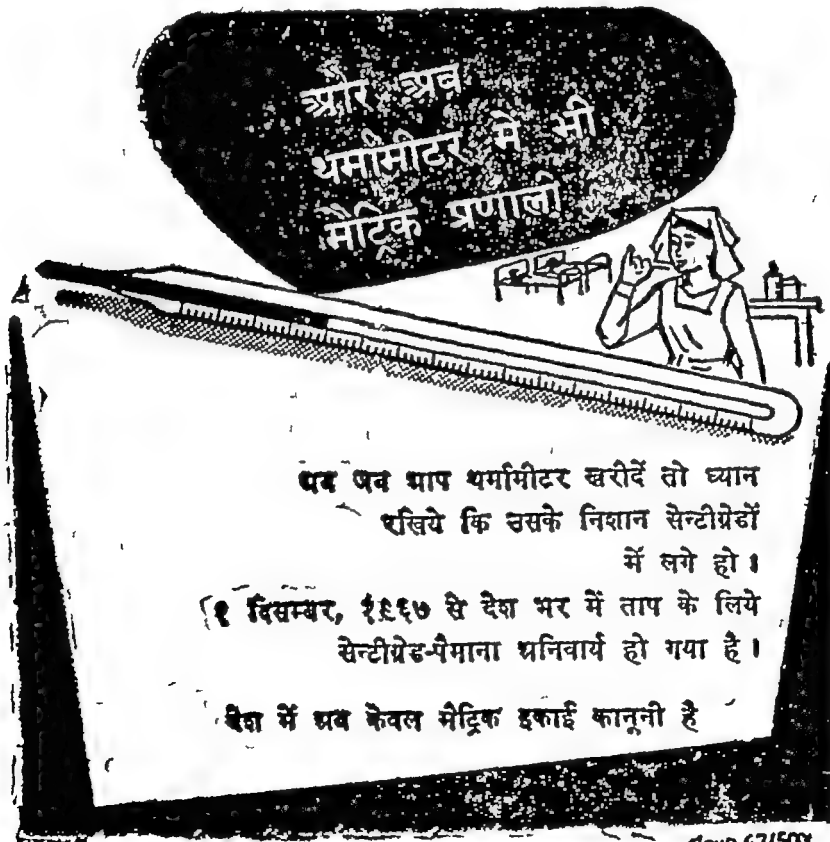 और अब
थर्मामीटर में भी
मैट्रिक प्रणाली
अब जब आप थर्मामीटर खरीदें तो ध्यान
रखिये कि उसके निशान सेन्टीग्रेडों
में लगे हों।
१ दिसम्बर, १९६७ से देश भर में ताप के लिये
सेन्टीग्रेड-पैमाना अनिवार्य हो गया है।
देश में अब केवल मैट्रिक इकाई कानूनी है